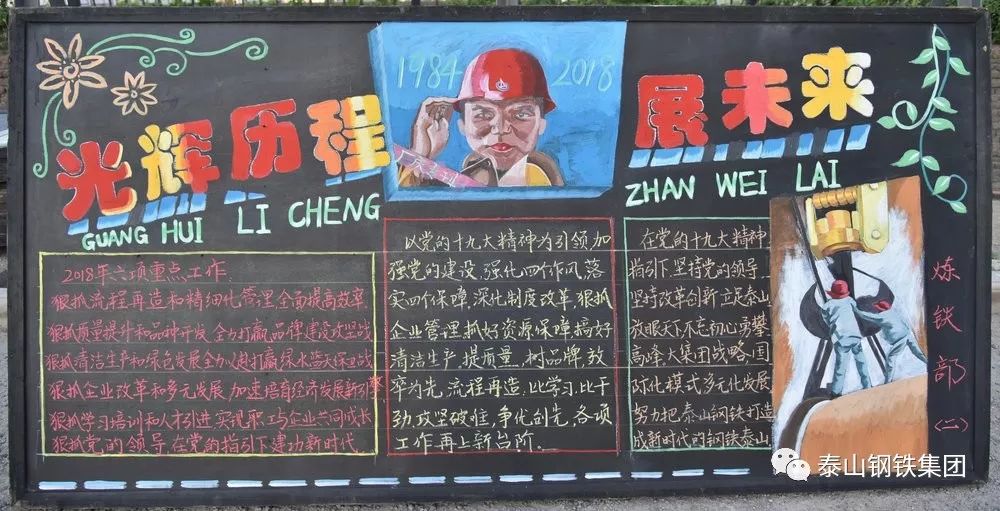 光辉历程
展未来
GUANG HUI LI CHENG
ZHAN WEI LAI
1984 2018
2018年六项重点工作
狠抓流程再造和精细化管理全面提高效率
狠抓质量提升和品种开发全力打赢品牌建设攻坚战
狠抓清洁生产和绿色发展全力以赴打赢绿水蓝天保卫战
狠抓企业改革和多元发展,加速培育经济发展新引擎
狠抓学习培训和人才引进实现职工与企业共同成长
狠抓党的领导,在党的指引下建功新时代
以党的十九大精神为引领,加
强党的建设,强化四个作风,落
实四个保障,深化制度改革,狠抓
企业管理,抓好资源保障,搞好
清洁生产,提质量,树品牌,效
率为先,流程再造,比学习,比干
劲,攻坚破难,争优创先,各项
工作再上新台阶。
在党的十九大精神
指引下,坚持党的领导,
坚持改革创新,立足泰山
放眼天下,不忘初心,勇攀
高峰,大集团战略,国
际化模式,多元化发展
努力把泰山钢铁打造
成新时代的钢铁泰山
炼铁部(二)
泰山钢铁集团